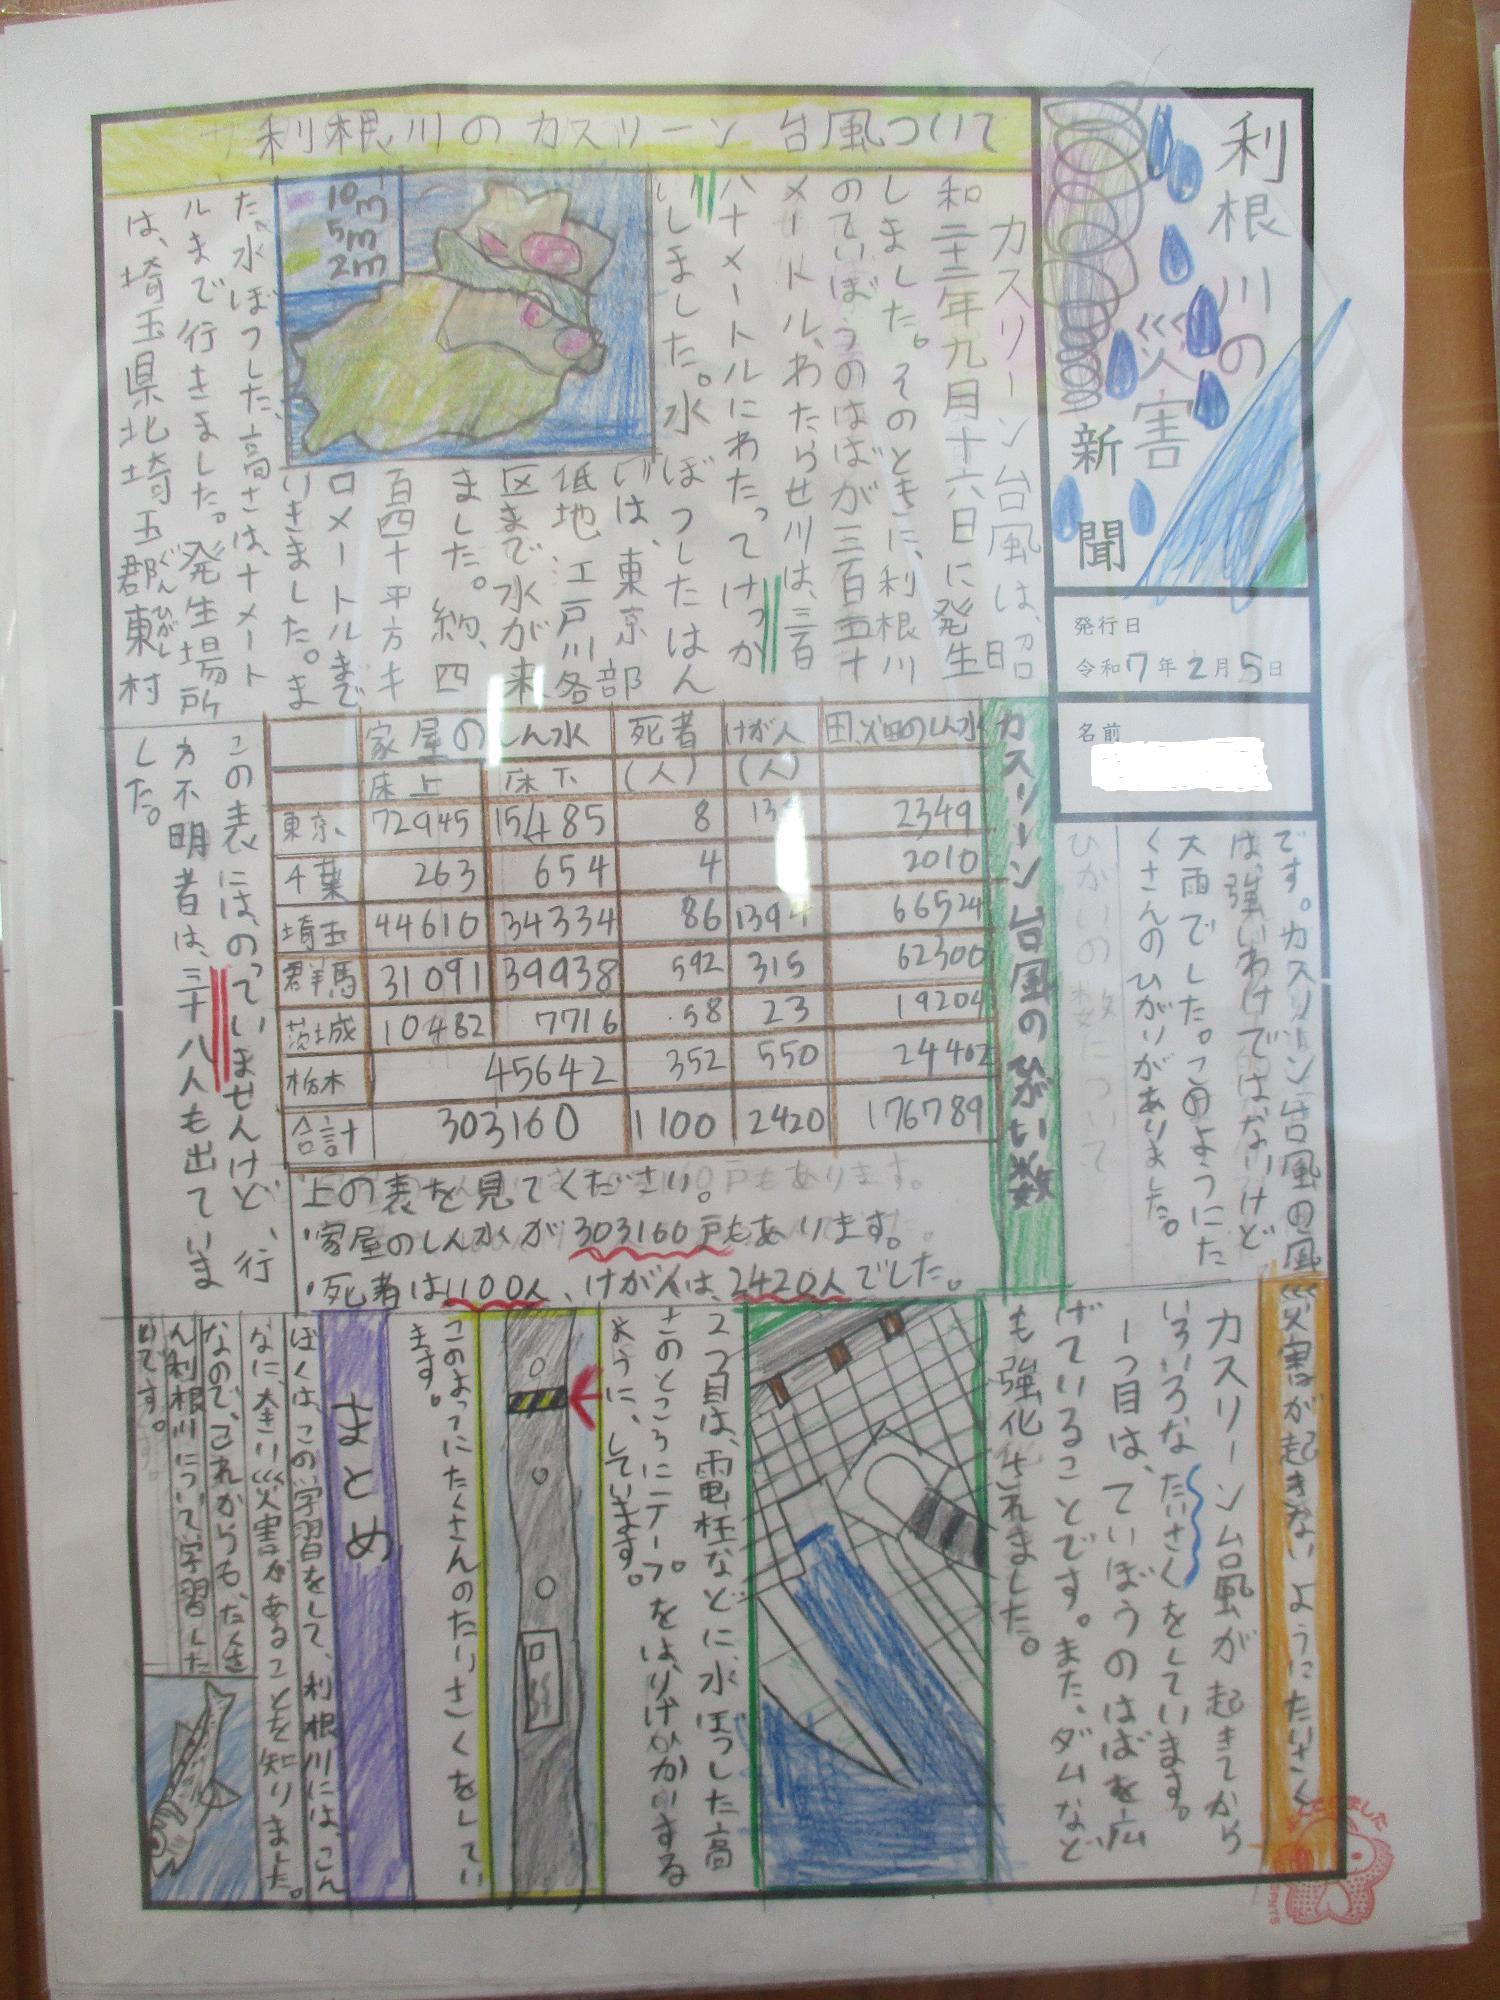 利根川の
災害
新聞
発行日
令和7年2月5日
名前
利根川のカスリーン台風ついて
カスリーン台風は、昭
和二十二年九月十六日に発生
しました。そのときに、利根川
のていぼうのはばが三百五十
メートル、わたらせ川は、三百
八十メートルにわたってけっか
いしました。水ぼつしたはん
いは、東京部
低地、江戸川各
区まで水が来
ました。約、四
百四十平方キ
ロメートルまで
いきました。ま
た、水ぼつした高さは、十メート
ルまで行きました。発生場所
は、埼玉県北埼玉郡東村
ぐん ひがし
10m
5m
2m
です。カスリーン台風の風
は、強いわけではないけど
大雨でした。このようにた
くさんのひがいがありました。
ひがいの数について
カスリーン台風のひがい数
家屋のしん水 死者 けが人 田、畑のしん水
床上 床下 (人) (人)
東京 72945 15485 8 2349
千葉 263 654 4 2010
埼玉 44610 34334 86 1394 66524
群馬 31091 39938 592 315 62300
茨城 10482 7716 58 23 19204
栃木 45642 352 550 24402
合計 303160 1100 2420 176789
上の表を見てください。
・家屋のしん水が303160戸もあります。
・死者は1100人、けが人は、2420人でした。
この表には、のっていませんけど、行
方不明者は、三十八人も出ていま
した。
災害が起きないようにたいさく
カスリーン台風が起きてから
いろいろなたいさくをしています。
一つ目は、ていぼうのはばを広
げていることです。また、ダムなど
も強化されました。
2つ目は、電柱などに水ぼつした高
さのところにテープをはりけんかいする
ように、しています。
このようにたくさんのたいさくをしてい
ます。
まとめ
ぼくは、この学習をして、利根川には、こん
なに、大きい災害があることを知りました。
なので、これからも、たくさ
ん利根川について学習した
いです。